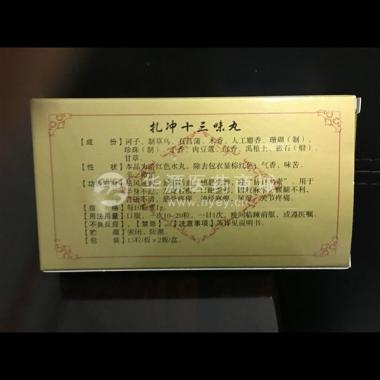 扎冲十三味丸
【成 份】 诃子、制草乌、石菖蒲、木香、人工麝香、珊瑚（制）、
珍珠（制）、丁香、肉豆蔻、沉香、禹粮土、磁石（煅）、
甘草。
【性 状】 本品为 红色水丸，除去包衣显棕 色；气香，味苦、
【功能主治】 祛风 用于
半身不遂， 腰腿不利，
言语不清， 筋骨疼痛， 关节疼痛。
【规 格】 每10粒重1g。
【用法用量】 口服，一次10~20粒，一日1次，晚间临睡前服，或遵医嘱。
【不良反应】、【禁忌】、【注意事项】等详见说明书。
【贮 藏】 密闭，防潮。
【包 装】 15粒/板×2板/盒。
华源医药商城
www.hyey.cn